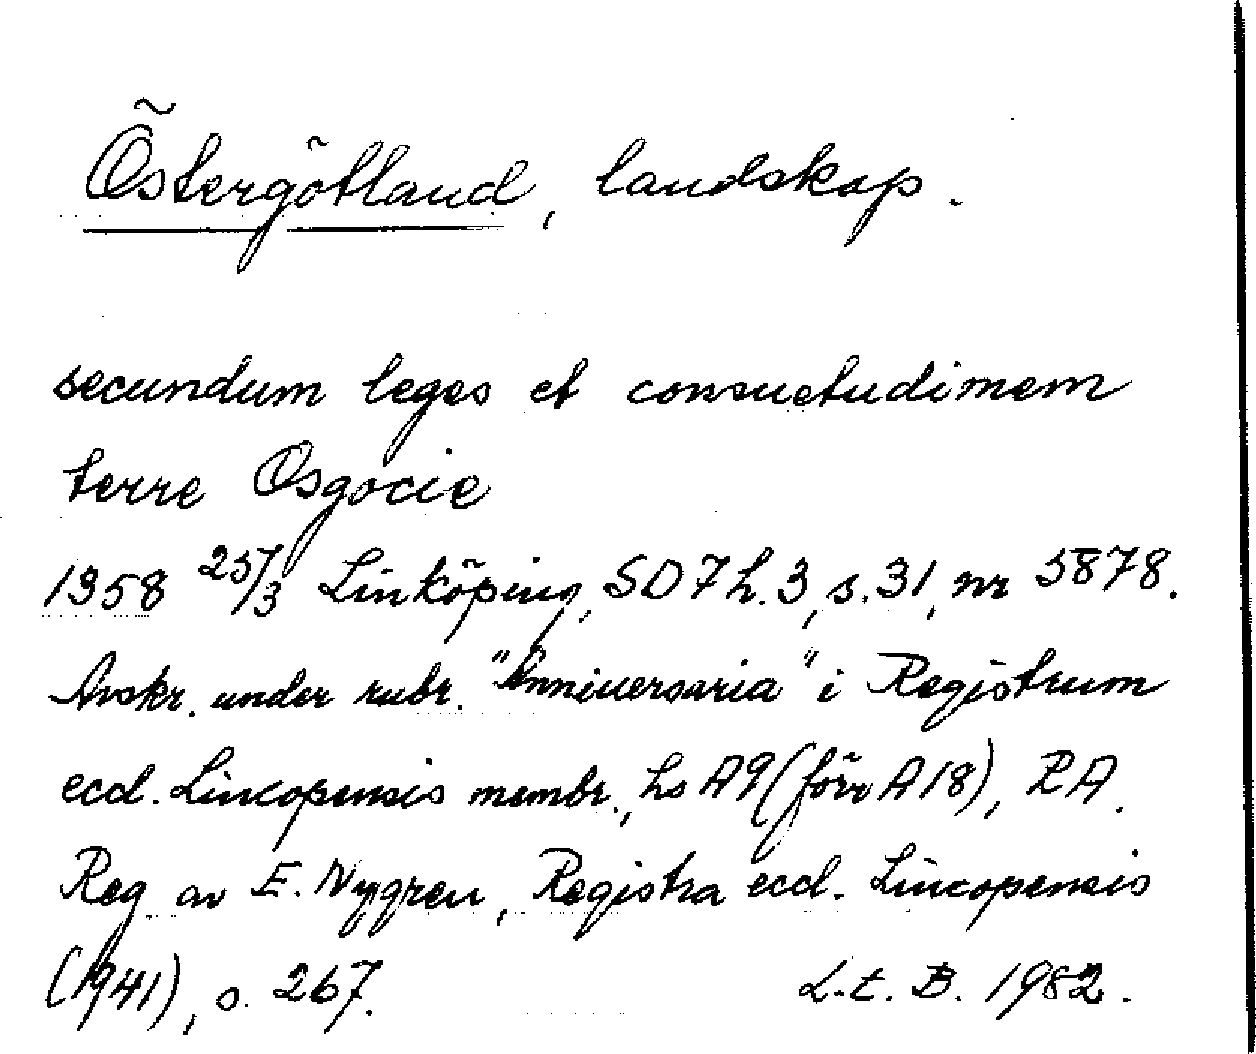 Östergötland, landskap.
secundum leges et consuetudinem
terre Osgocie
1358 25/3 Linköping, SD 7 h. 3, s. 31, nr 5878.
Avskr. under rubr. "Anniuersaria" i Registrum
eccl. Lincopensis membr., hs A9 (förr A 18), RA.
Reg av E. Nygren, Registra eccl. Lincopensis
(1941), s. 267.
L.t. B. 1982.